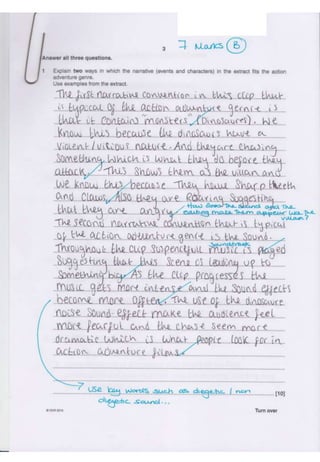 3
7 Marks (B)
Answer all three questions.
1 Explain two ways in which the narrative (events and characters) in the extract fits the action
adventure genre.
Use examples from the extract.
The first narrative convention in this clip that
is typical of the action adventure gernre is
that it contains monsters (Dinosaurs). We
know this because the dinosaurs have a
violent/vicious nature. And they are chasing
something which is what they do before they
attack. This shows them as the villian and
we know this because they have sharp teeth
and claws. Also they are roaring suggesting
that they are angry.
How does the sound of the
roaring make them appear like the
villian?
The second narrative convention that is typical
of the action adventure genre is the sound.
Throughout the clip suspenceful music is played
soundtrack
suggesting that this scene is leading up to
something big. As the clip progresses the
music gets more intense and the sound effects
become more often. The use of the dinosaurs
noise sound effect make the audience feel
more fearful and the chase seem more
dramatic which is what people look for in
action adventure films.
use key words such as diegetic / non
diegetic sound...
[10]
Turn over